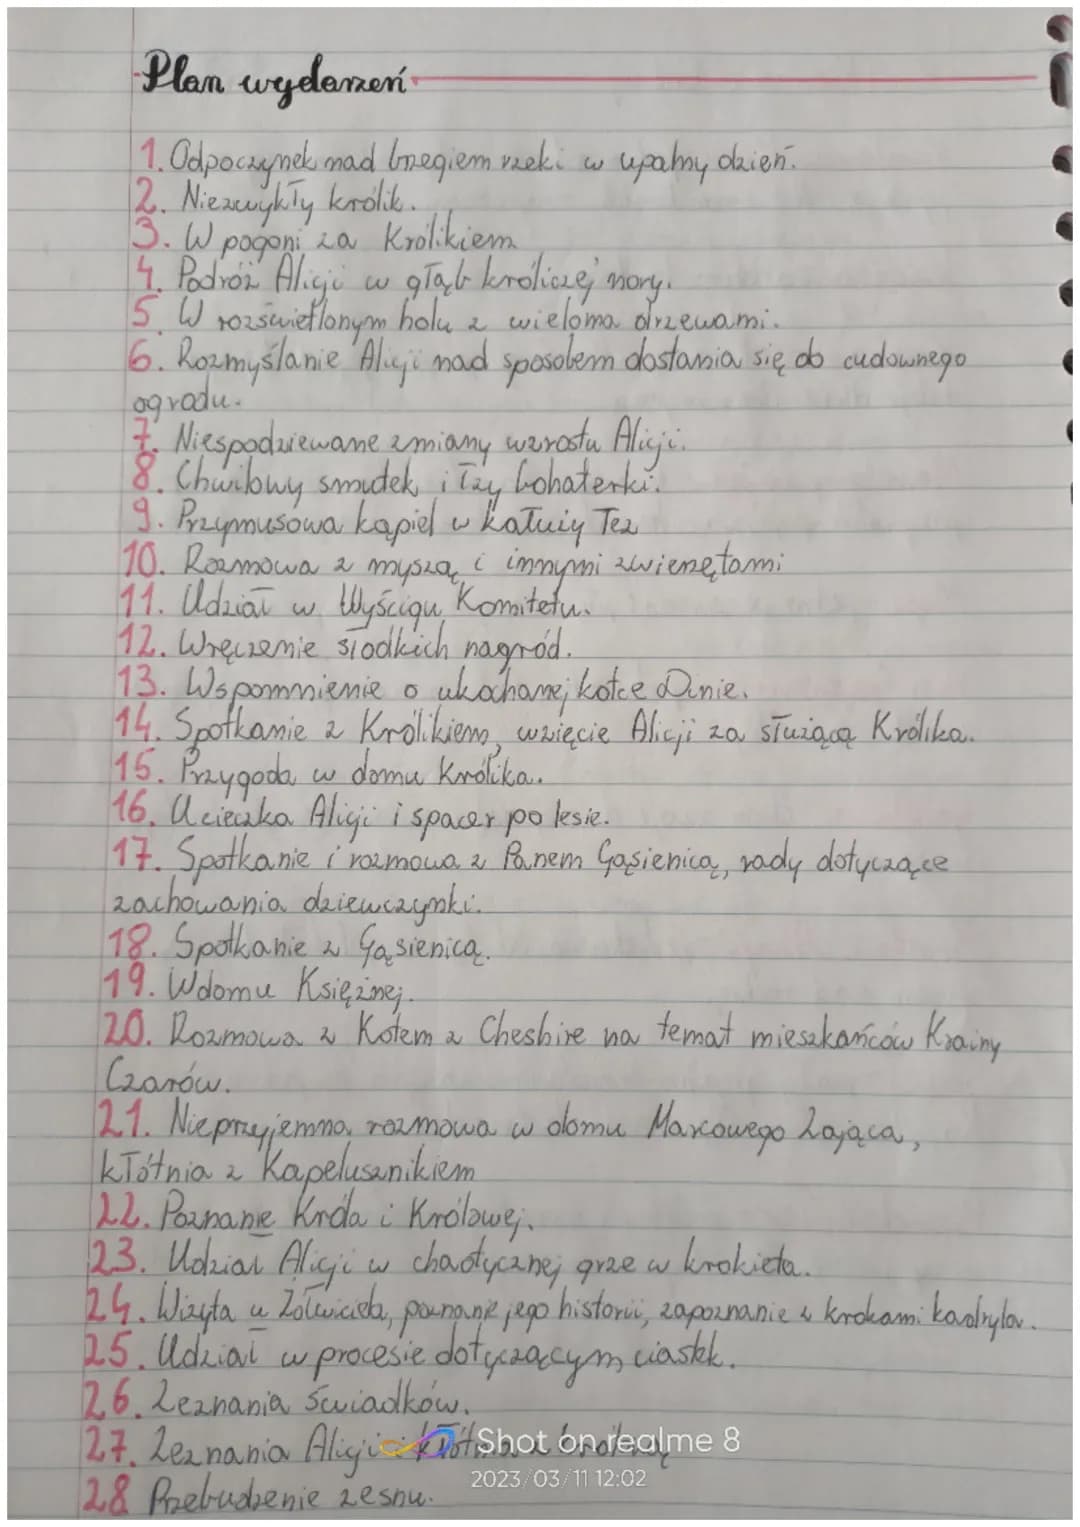 Plan wydarzeń
1. Odpoczynek nad brzegiem rzeki w upalny dzień.
2. Niezwykły królik.
3. W pogoni za Królikiem
4. Podróż Alicji w głąb króliczej nory.
5. W rozświetlonym holu z wieloma drzewami.
6. Rozmyślanie Alicji nad sposobem dostania się do cudownego
ogrodu.
7. Niespodziewane zmiany wzrostu Alicji.
8. Chwilowy smutek i łzy bohaterki.
9. Przymusowa kąpiel w kałuży łez
10. Rozmowa z myszą i innymi zwierzętami
11. Udział w Wyścigu Komitetu.
12. Wręczenie słodkich nagród.
13. Wspomnienie o ukochanej kotce Dinie.
14. Spotkanie z Królikiem, wzięcie Alicji za służącą Królika.
15. Przygoda w domu Królika.
16. Ucieczka Alicji i spacer po lesie.
17. Spotkanie i rozmowa z Panem Gąsienicą, rady dotyczące
zachowania dziewczynki.
18. Spotkanie z Gąsienicą.
19. W domu Księżnej.
20. Rozmowa z Kotem z Cheshire na temat mieszkańców Krainy
Czarów.
21. Nieprzyjemna rozmowa w domu Marcowego Zająca,
kłótnia z Kapelusznikiem
22. Poznanie Króla i Królowej.
23. Udział Alicji w chaotycznej grze w krokieta.
24. Wizyta u Żółwiciela, poznanie jego historii, zapoznanie z krokami kadryla.
25. Udział w procesie dotyczącym ciastek.
26. Zeznania świadków.
27. Zeznania Alicji i kłótnia z
Shot on realme 8
2023/03/11 12:02
28 Przebudzenie ze snu.